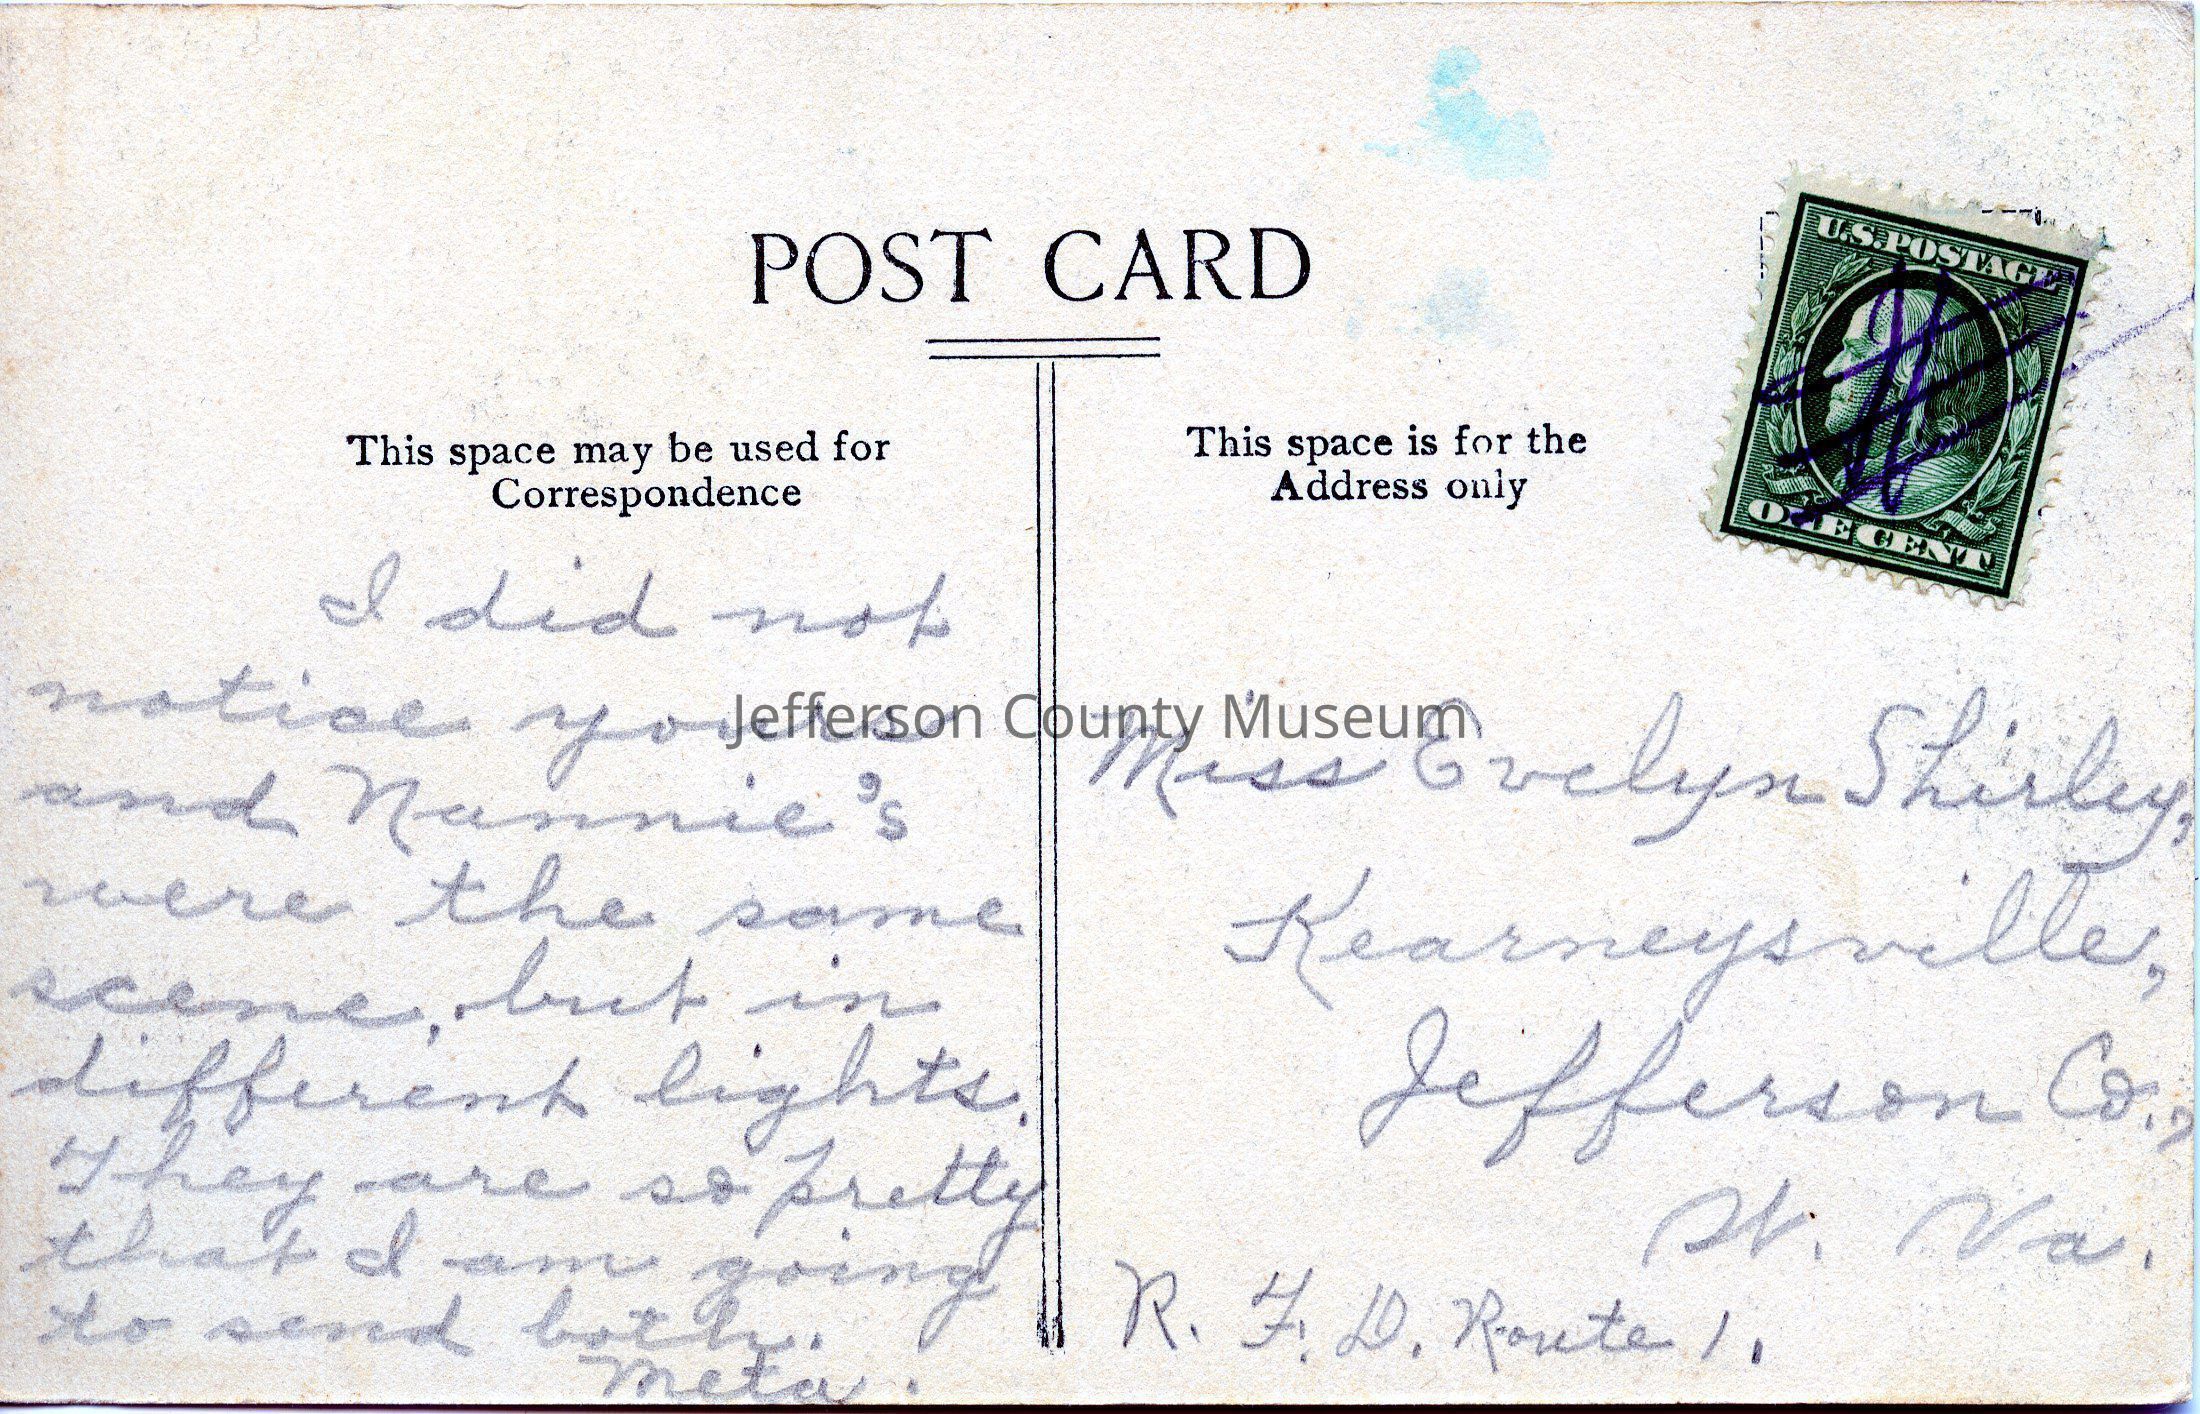 POST CARD
This space may be used for
Correspondence
I did not
notice yours
and Nannie's
were the same
scene, but in
different lights.
They are so pretty
that I am going
to send both.
Meta.
This space is for the
Address only
U.S. POSTAGE
ONE CENT
Miss Evelyn Shirley,
Kearneysville,
Jefferson Co.,
W. Va.
R. F. D. Route 1.
Jefferson County Museum